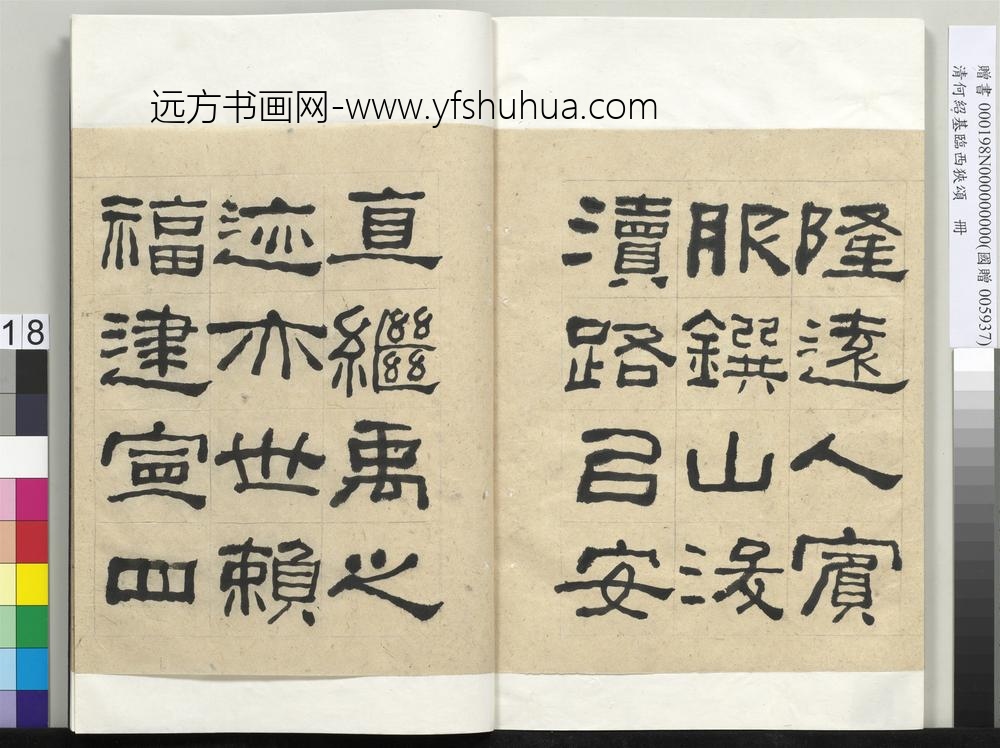 远方书画网-www.yfshuhua.com
贈書 000198N000000000(國贈 005937)
清何紹基臨西狹頌 冊
隆遠人賓
服鐉山浚
瀆路㠯安
直繼禹之
迹亦世賴
福建寧四
18